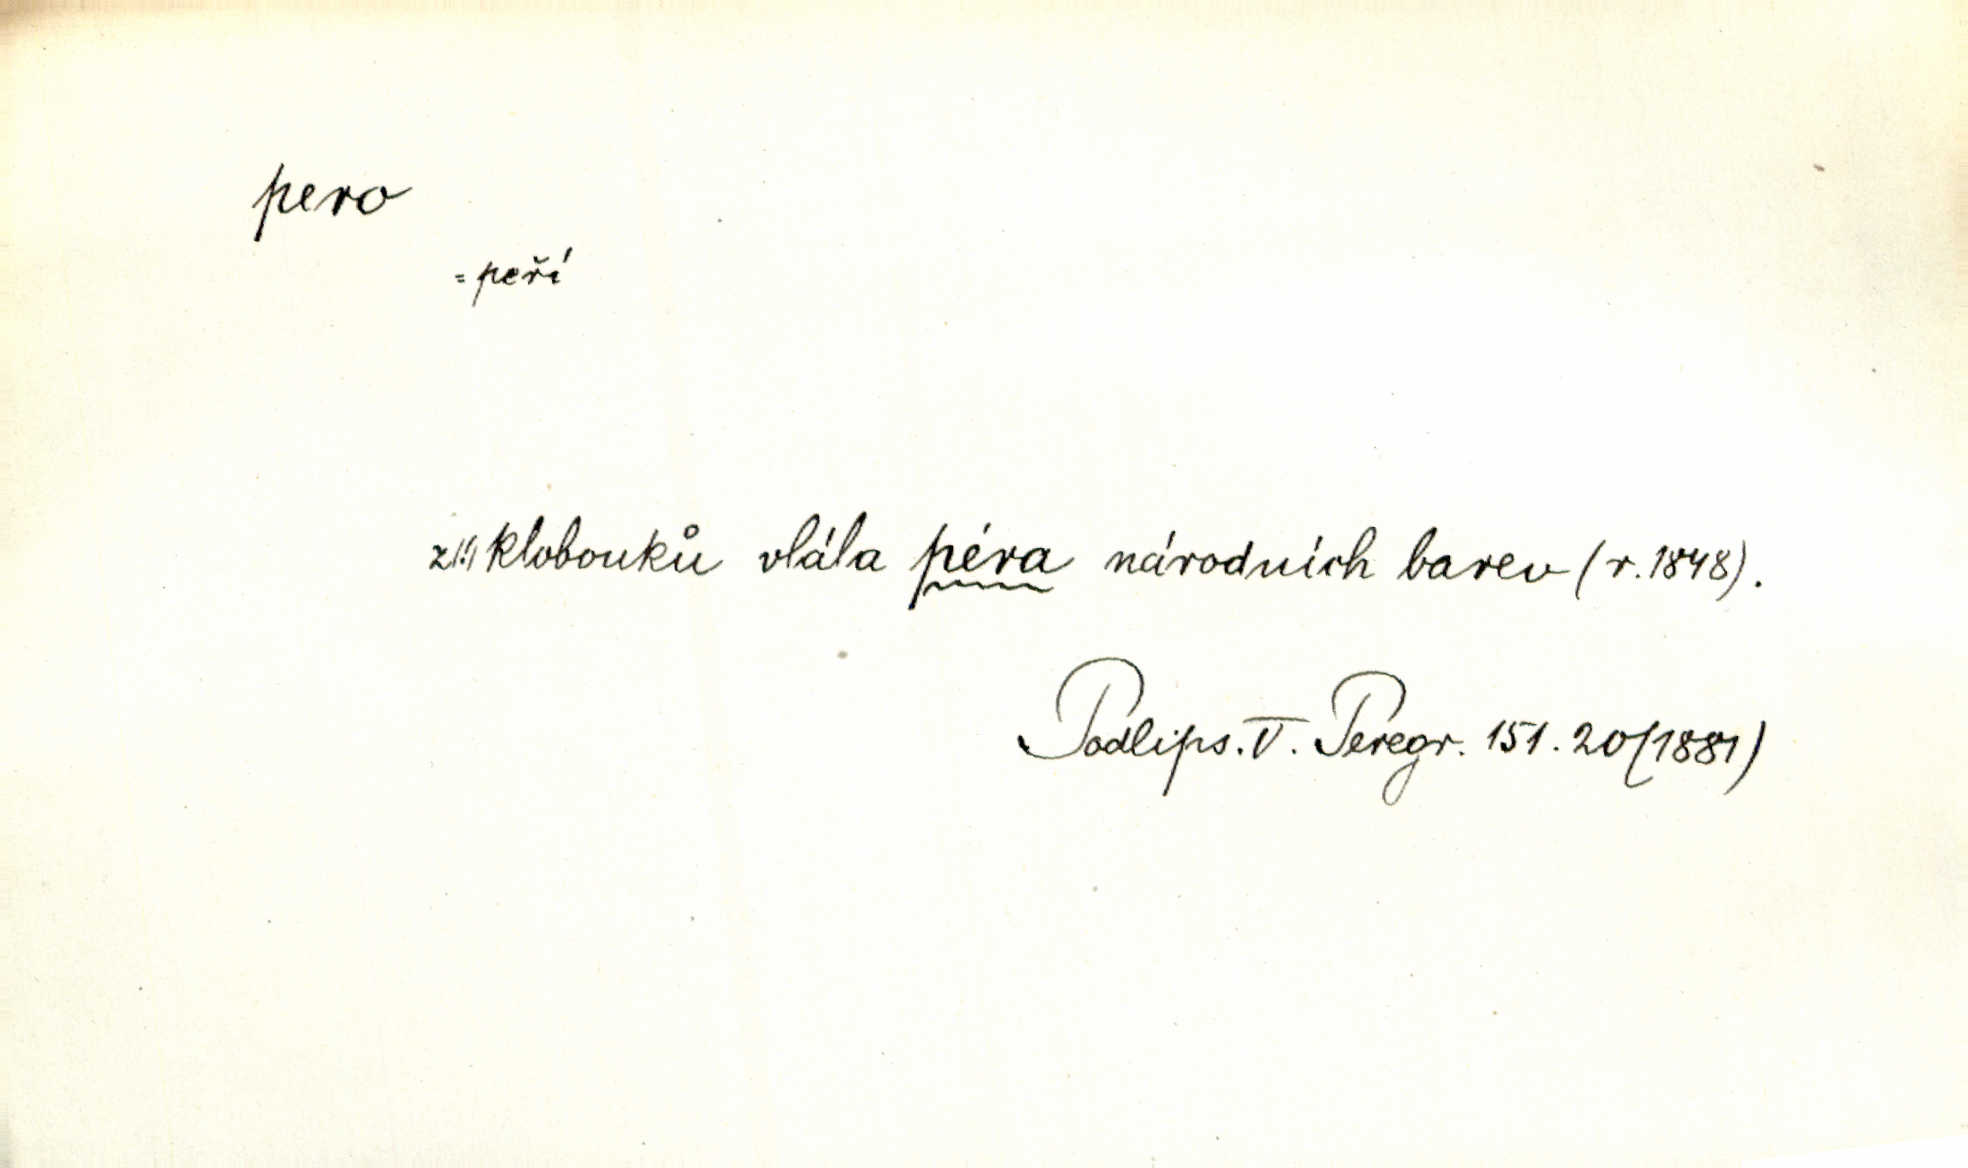 pero
= peří
z(!) klobouků vlála péra národních barev (r. 1848).
Podlips. V. Peregr. 151. 20 (1881)